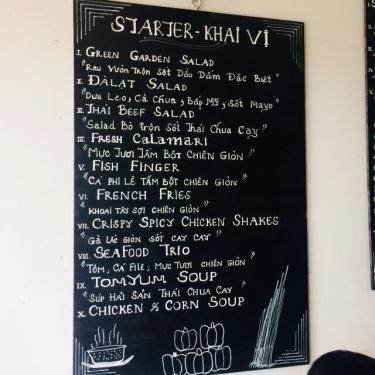 STARTER - KHAI VỊ
I. GREEN GARDEN SALAD
"Rau Vườn Trộn Sốt Dầu Dấm Đặc Biệt"
II. ĐÀLẠT SALAD
"Dưa Leo, Cà Chua, Bắp Mỹ, Sốt Mayo"
III. THAI BEEF SALAD
"Salad Bò trộn Sốt Thái Chua Cay"
IV. FRESH CALAMARI
"MỰC TƯƠI TẨM BỘT CHIÊN GIÒN"
V. FISH FINGER
"CÁ PHI LÊ TẨM BỘT CHIÊN GIÒN"
VI. FRENCH FRIES
"KHOAI TÂY SỢI CHIÊN GIÒN"
VII. CRISPY SPICY CHICKEN SHAKES
"GÀ ƯC GIÒN SỐT CAY CAY"
VIII. SEAFOOD TRIO
"TÔM, CÁ FILE, MỰC TƯƠI CHIÊN GIÒN"
IX. TOMYUM SOUP
"SÚP HẢI SẢN THÁI CHUA CAY"
X. CHICKEN & CORN SOUP